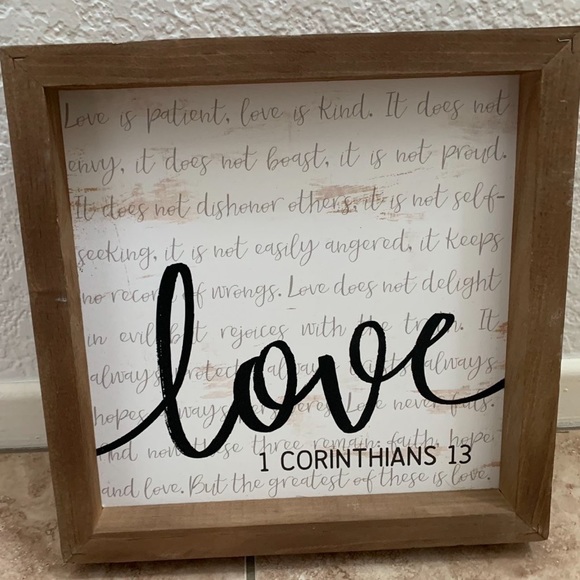 Love is patient, love is kind. It does not
envy, it does not boast, it is not proud.
It does not dishonor others, it is not self-
seeking, it is not easily angered, it keeps
no record of wrongs. Love does not delight
in evil but rejoices with the truth. It
always protects, always trusts, always
hopes, always perseveres. Love never fails.
And now these three remain: faith, hope
and love. But the greatest of these is love.
love
1 CORINTHIANS 13